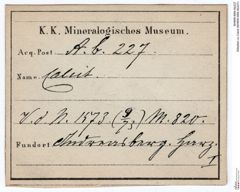 K. K. Mineralogisches Museum.
Acq. Post. A. b. 227.
Name. Calcit.
V. d. N. 1573 M. 820.
Fundort Andreasberg. Harz